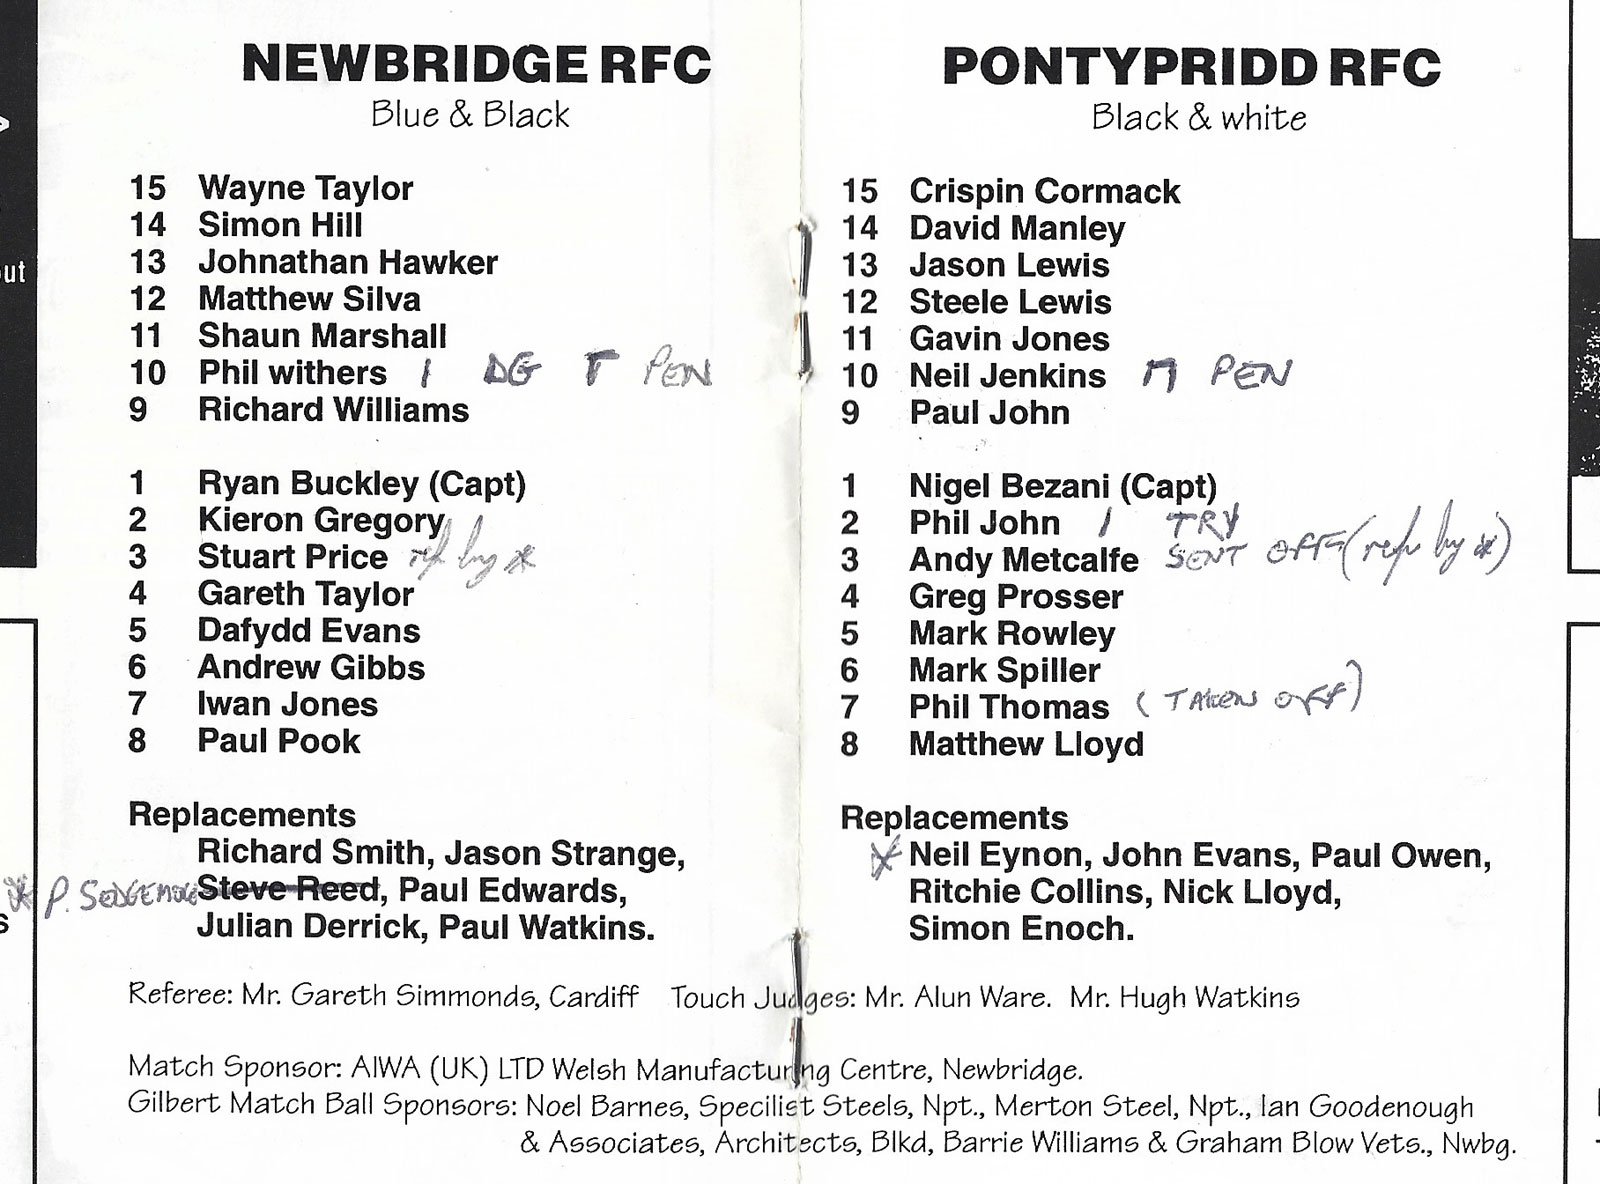 NEWBRIDGE RFC
Blue & Black
15 Wayne Taylor
14 Simon Hill
13 Johnathan Hawker
12 Matthew Silva
11 Shaun Marshall
10 Phil withers 1 DG PEN
9 Richard Williams
1 Ryan Buckley (Capt)
2 Kieron Gregory
3 Stuart Price rep by *
4 Gareth Taylor
5 Dafydd Evans
6 Andrew Gibbs
7 Iwan Jones
8 Paul Pook
Replacements
Richard Smith, Jason Strange,
* P. SEDGEMORE Steve Reed, Paul Edwards,
Julian Derrick, Paul Watkins.
PONTYPRIDD RFC
Black & white
15 Crispin Cormack
14 David Manley
13 Jason Lewis
12 Steele Lewis
11 Gavin Jones
10 Neil Jenkins PEN
9 Paul John
1 Nigel Bezani (Capt)
2 Phil John 1 TRY
3 Andy Metcalfe SENT OFF (rep by *)
4 Greg Prosser
5 Mark Rowley
6 Mark Spiller
7 Phil Thomas (TAKEN OFF)
8 Matthew Lloyd
Replacements
* Neil Eynon, John Evans, Paul Owen,
Ritchie Collins, Nick Lloyd,
Simon Enoch.
Referee: Mr. Gareth Simmonds, Cardiff Touch Judges: Mr. Alun Ware. Mr. Hugh Watkins
Match Sponsor: AIWA (UK) LTD Welsh Manufacturing Centre, Newbridge.
Gilbert Match Ball Sponsors: Noel Barnes, Specilist Steels, Npt., Merton Steel, Npt., Ian Goodenough
& Associates, Architects, Blkd, Barrie Williams & Graham Blow Vets., Nwbg.